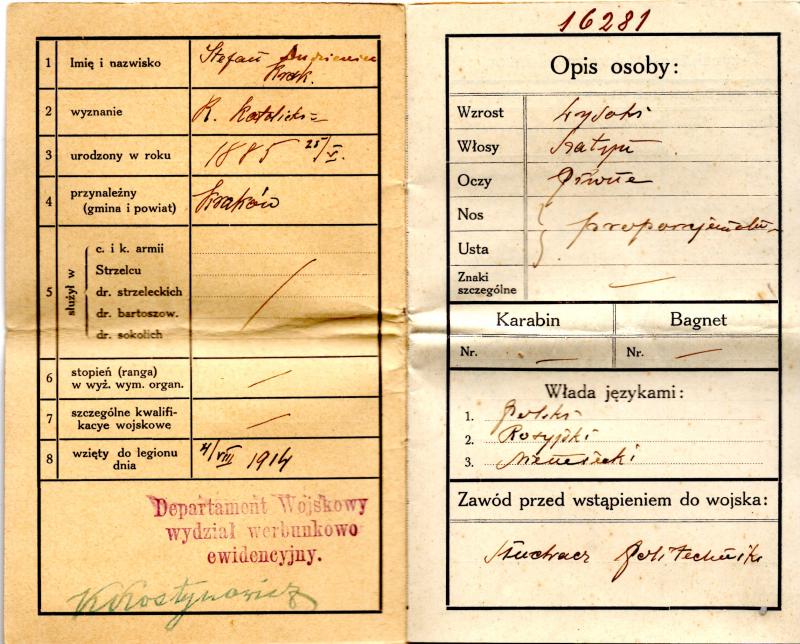 1 Imię i nazwisko Stefan
Krak.
2 wyznanie R. Katolicki
3 urodzony w roku 1885 25/VI.
4 przynależny
(gmina i powiat) Kraków
5 służył w
c. i k. armii
Strzelcu
dr. strzeleckich
dr. bartoszow.
dr. sokolich
6 stopień (ranga)
w wyż. wym. organ. —
7 szczególne kwalifi-
kacye wojskowe —
8 wzięty do legionu
dnia 4/VIII 1914
Departament Wojskowy
wydział werbunkowo
ewidencyjny.
16281
Opis osoby:
Wzrost wysoki
Włosy szatyn
Oczy piwne
Nos
Usta
Znaki
szczególne —
Karabin Bagnet
Nr. — Nr. —
Włada językami:
1. Polski
2. Rosyjski
3. Niemiecki
Zawód przed wstąpieniem do wojska:
Słuchacz Politechniki